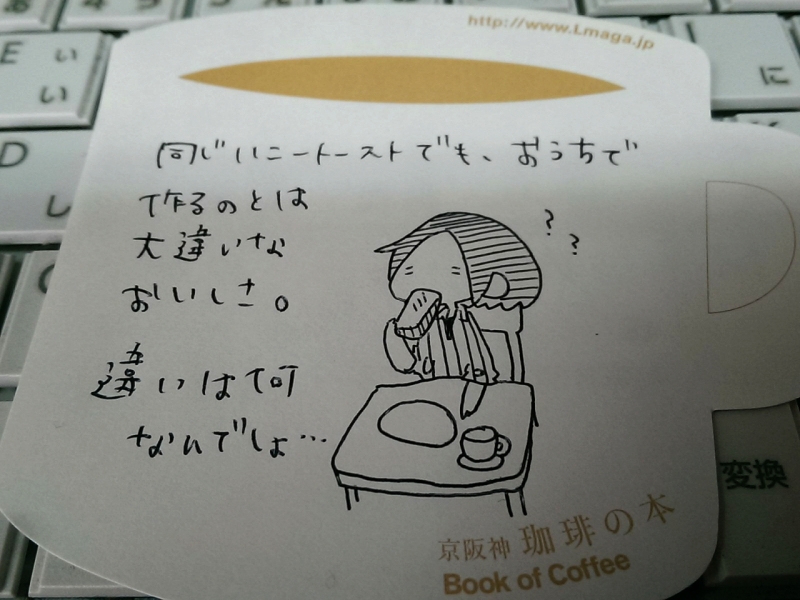 http://www.Lmaga.jp
同じハニートーストでも、おうちで
作るのとは
大違いな
おいしさ。
違いは何
なんでしょ…
? ?
京阪神 珈琲の本
Book of Coffee
E い
い
D
し
に
変換